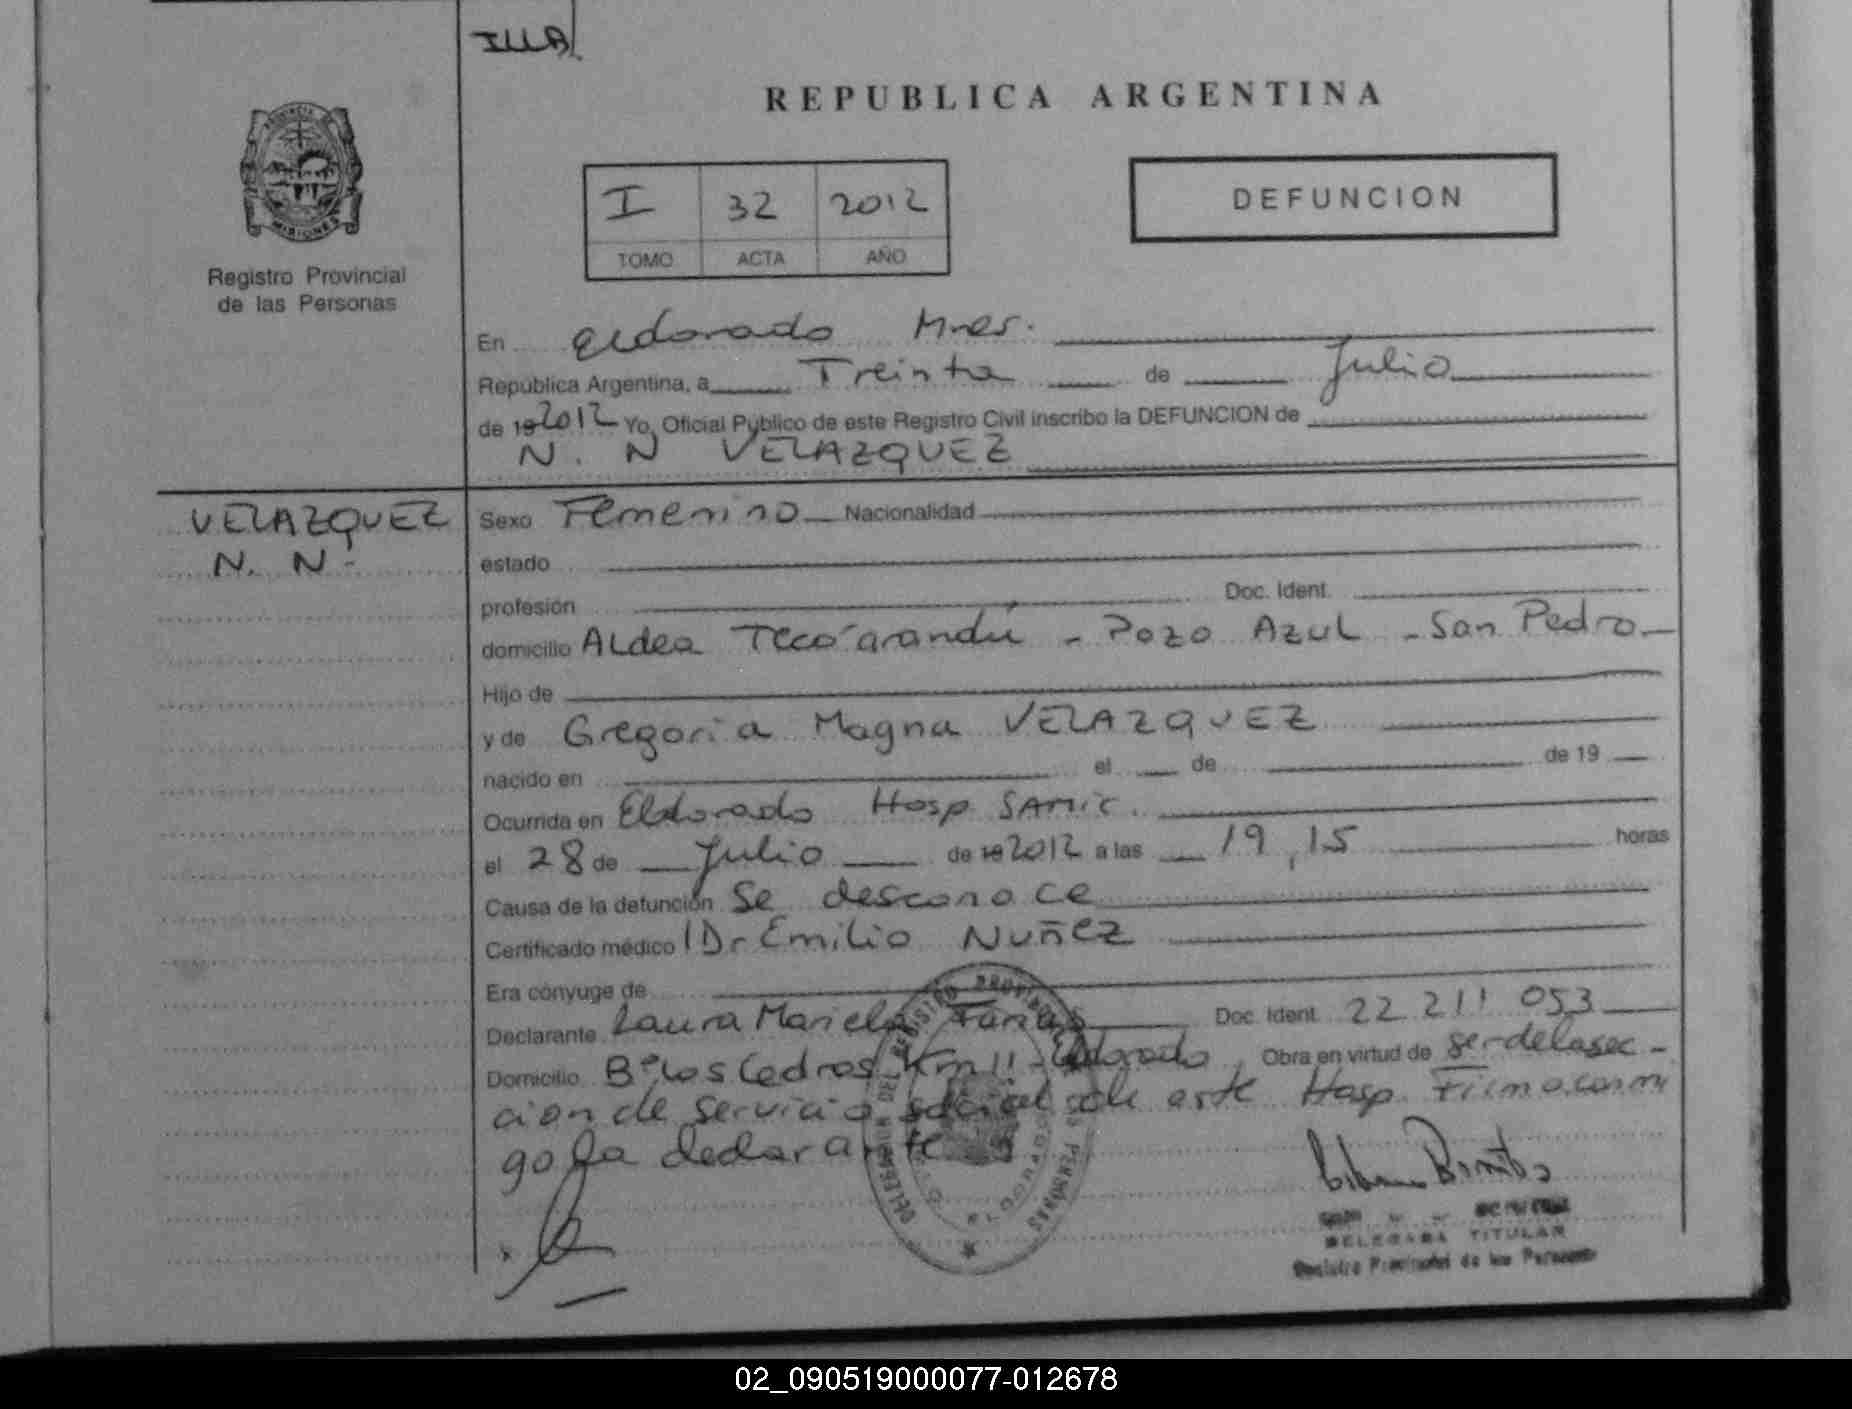 ILLA.
REPUBLICA ARGENTINA
PROVINCIA DE
MISIONES
I 32 2012
TOMO ACTA AÑO
DEFUNCION
Registro Provincial
de las Personas
En Eldorado Mnes.
República Argentina, a Treinta de Julio
de 19 2012 Yo, Oficial Público de este Registro Civil inscribo la DEFUNCION de
N. N VELAZQUEZ
VELAZQUEZ
N. N.
Sexo Femenino Nacionalidad
estado
profesión Doc. Ident.
domicilio Aldea Teco'arandú - Pozo Azul - San Pedro
Hijo de
y de Gregoria Magna VELAZQUEZ
nacido en el de de 19
Ocurrida en Eldorado Hosp SAMIC.
el 28 de Julio de 19 2012 a las 19,15 horas
Causa de la defunción Se desconoce
Certificado médico Dr Emilio Nuñez
Era cónyuge de
Declarante Laura Mariela Farias Doc. Ident. 22 211 053
Domicilio Bº Los Cedros Km 11 - Eldorado Obra en virtud de ser de la sec-
cion de servicio social de este Hosp Firmo conmi
go la declarante
DELEGACION DEL REGISTRO PROVINCIAL DE LAS PERSONAS
ELDORADO
DELEGADA TITULAR
Registro Provincial de las Personas
02_090519000077-012678